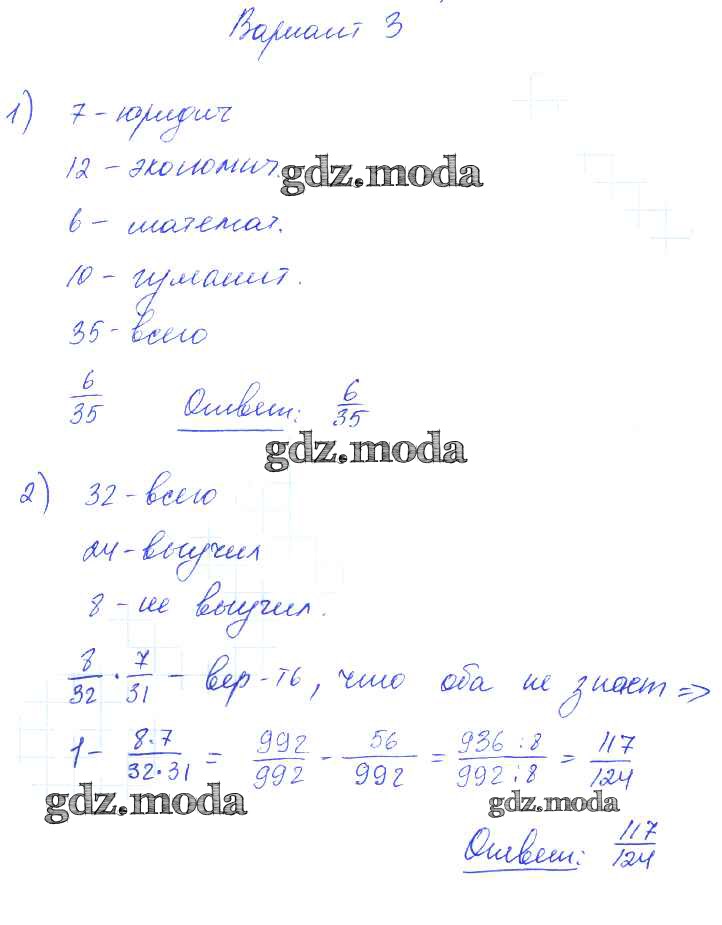 Вариант 3
1) 7 - юридич
12 - экономич.
gdz.moda
6 - математ.
10 - гуманит.
35 - всего
6/35 Ответ: 6/35
gdz.moda
2) 32 - всего
24 - выучил
8 - не выучил.
8/32 · 7/31 - вер-ть, что оба не знает =>
1 - 8·7/32·31 = 992/992 - 56/992 = 936:8/992:8 = 117/124
gdz.moda gdz.moda
Ответ: 117/124